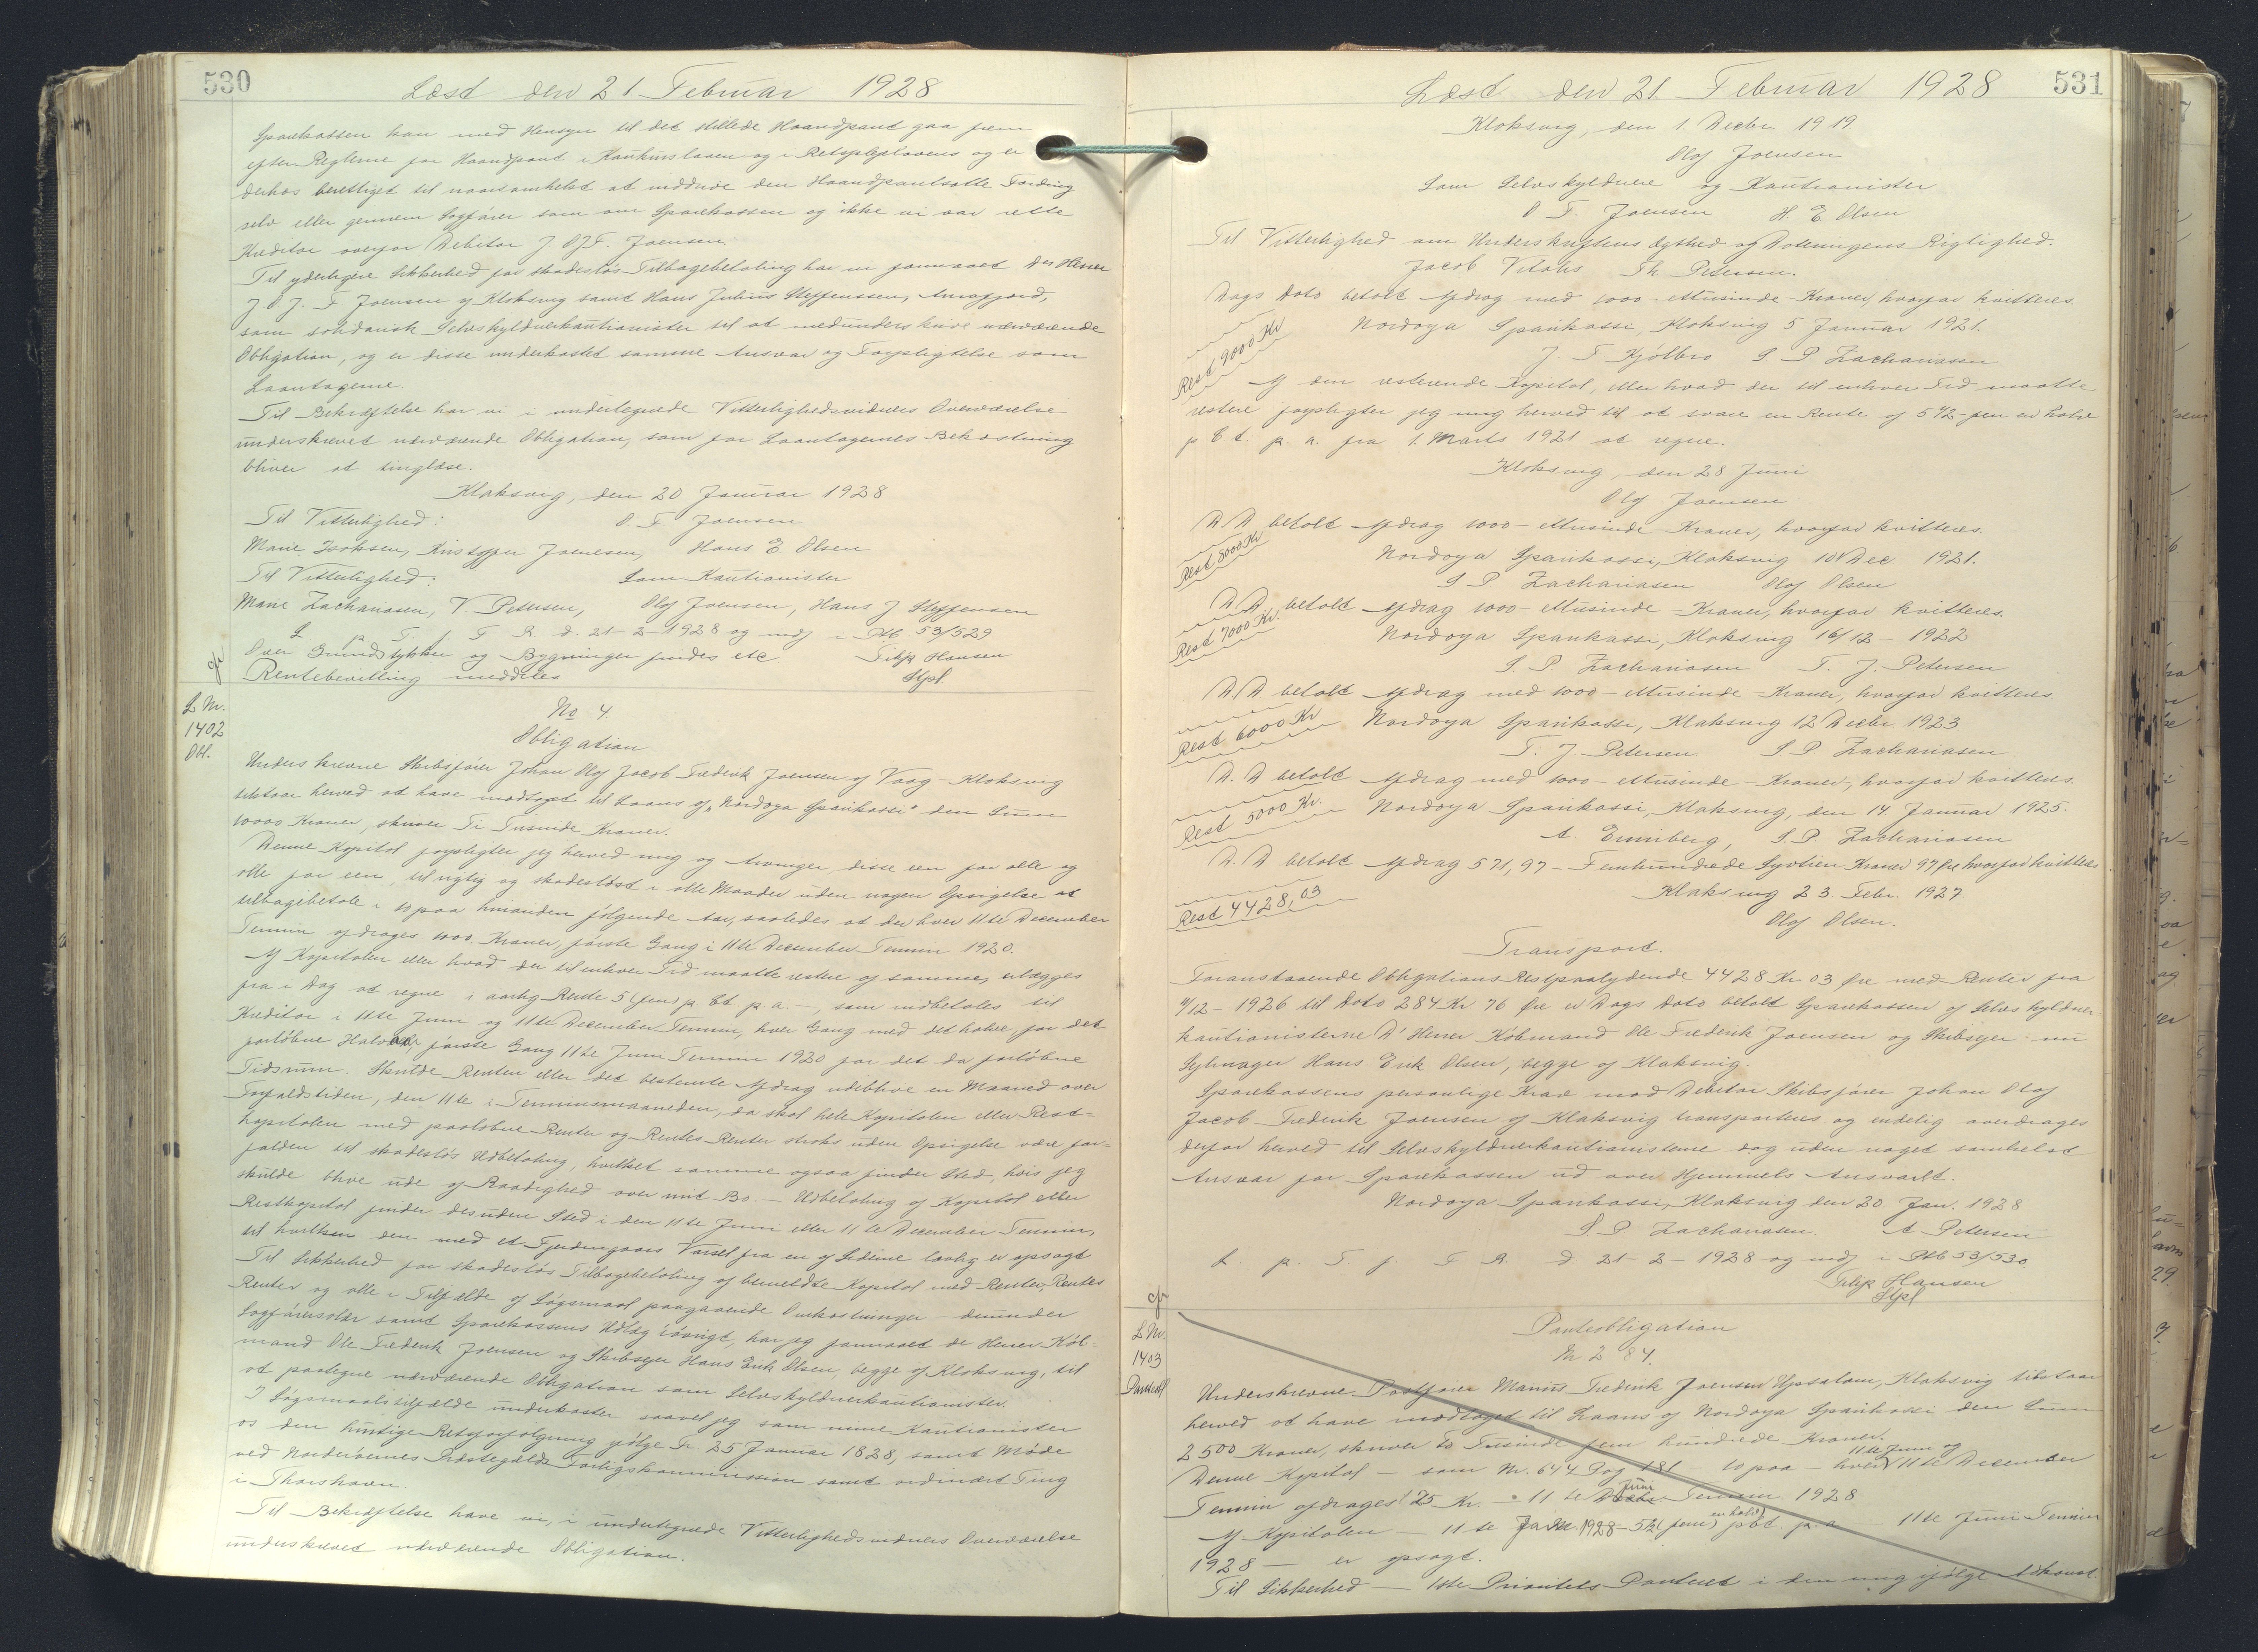 530
Læst den 21 Februar 1928
Sparekassen kan med Hensyn til det stillede Haandpant gaa frem
efter Reglerne for Haandpant i Konkursloven og i Retsplejelovens og er
derhos berettiget til naarsomhelst at inddrive den Haandpantsatte Fordring
selv eller gennem Sagfører som om Sparekassen og ikke vi var rette
Kreditor overfor Debitor J. O. J. F. Joensen.
Til yderligere Sikkerhed for skadesløs Tilbagebetaling har vi formaaet D'hrr Herrer
J. O. J. F. Joensen af Klaksvig samt Hans Julius Steffenssen, Arnefjord,
som solidarisk Selvskyldnerkautionister til at medunderskrive nærværende
Obligation, og er disse underkastet samme Ansvar og Forpligtelse som
Laantagerne.
Til Bekræftelse har vi i undertegnede Vitterlighedsvidners Overværelse
underskrevet nærværende Obligation, som for Laantagernes Bekostning
bliver at tinglæse.
Klaksvig, den 20 Januar 1928
Til Vitterlighed: O F Joensen
Marie Isaksen, Kristoffer Joensen, Hans E. Olsen
Til Vitterlighed: Som Kautionister
Marie Zachariasen, V. Petersen, Olof Joensen, Hans J Steffensen
L p. T. f. F R. d. 21-2-1928 og indf i Ptb 53/529
Over Grundstykker og Bygninger findes etc Filip Hansen
Rentebevilling meddeles Stpl.
L Nr.
1402
Obl.
No 4.
Obligation
Underskrevne Skibsfører Johan Olof Jacob Frederik Joensen af Vaag-Klaksvig
tilstaar herved at have modtaget til Laans af "Nordoya Sparikassi" den Sum
10000 Kroner, skriver Ti Tusinde Kroner.
Denne Kapital forpligter jeg herved mig og Arvinger, disse een for alle og
alle for een, til rigtig og skadesløst i alle Maader uden nogen Opsigelse at
tilbagebetale i 10 paa hinanden følgende Aar, saaledes at der hver 11te December
Termin afdrages 1000 Kroner, første Gang i 11te December Termin 1920.
Af Kapitalen eller hvad der til enhver Tid maatte restere af samme, erlægges
fra i Dag at regne i aarlig Rente 5 (fem) p Ct p. a. -, som indbetales til
Kreditor i 11te Juni og 11te December Termin, hver Gang med det halve, for det
forløbne Halvaar, første Gang 11te Juni Termin 1920 for det da forløbne
Tidsrum. Skulde Renten eller det bestemte Afdrag udeblive en Maaned over
Forfaldstiden, den 11te i Terminsmaaneden, da skal hele Kapitalen eller Rest-
kapitalen med paaløbne Renter og Rentes Renter straks uden Opsigelse være for-
falden til skadesløs Udbetaling, hvilket samme ogsaa finder Sted, hvis jeg
skulde blive ude af Raadighed over mit Bo. - Udbetaling af Kapital eller
Restkapital finder desuden Sted i den 11te Juni eller 11te December Termin,
til hvilken den med et Fjerdingaars Varsel fra en af Siderne lovlig er opsagt
Til Sikkerhed for skadesløs Tilbagebetaling af bemeldte Kapital med Renter, Rentes
Renter og alle i Tilfælde af Søgsmaal paagaaende Omkostninger - derunder
Sagførersalær samt Sparekassens Udlæg iøvrigt, har jeg formaaet de Herrer Køb-
mand Ole Frederik Joensen og Skibsejer Hans Erik Olsen, begge af Klaksvig, til
at paategne nærværende Obligation som Selvskyldnerkautionister.
I Søgsmaalstilfælde underkaster saavel jeg som mine Kautionister
os den hurtige Retsforfølgning ifølge Fr. 25 Januar 1828, samt Møde
ved Norderøernes Præstegælds Forligskommission samt ordinært Ting
i Thorshavn.
Til Bekræftelse have vi, i undertegnede Vitterlighedsvidners Overværelse
underskrevet nærværende Obligation.
531
Læst den 21. Februar 1928
Klaksvig, den 1. Decbr. 1919.
Olof Joensen
Som Selvskyldnere og Kautionister
O F. Joensen H. E. Olsen
Til Vitterlighed om Underskriftens Ægthed og Dateringens Rigtighed.
Jacob Vilhs Th. Petersen.
Dags Dato betalt Afdrag med 1000 - ettusinde - Kroner, hvorfor kvitteres.
Nordoya Sparikassi, Klaksvig 5 Januar 1921.
Rest 9000 Kr
J. F Kjølbro S P. Zachariasen
Af den resterende Kapital, eller hvad der til enhver Tid maatte
restere forpligter jeg mig herved til at svare en Rente af 5 1/2 - fem en halv
p Ct. p. a. fra 1. Marts 1921 at regne.
Klaksvig, den 28 Juni
Olof Joensen
D. D. betalt Afdrag 1000 - ettusinde - Kroner, hvorfor kvitteres.
Rest 8000 Kr
Nordoya Sparikassi, Klaksvig 10 Dec 1921.
S P Zachariasen Olof Olsen
D. D. betalt Afdrag 1000 - ettusinde - Kroner, hvorfor kvitteres.
Rest 7000 Kr.
Nordoya Sparikassi, Klaksvig 16/12 - 1922
S. P Zachariasen T. J. Petersen
D. D betalt Afdrag med 1000 - ettusinde - Kroner, hvorfor kvitteres.
Rest 6000 Kr
Nordoya Sparikassi, Klaksvig 12 Decbr. 1923
T. J. Petersen S P Zachariasen
D. D betalt Afdrag med 1000 - ettusinde - Kroner, hvorfor kvitteres.
Rest 5000 Kr.
Nordoya Sparikassi, Klaksvig, den 14. Januar 1925.
A. Enniberg, S. P. Zachariasen
D. D betalt Afdrag 571,97 - Femhundrede Syvtien Kroner 97 Øre hvorfor kvitteres
Rest 4428,03
Klaksvig 23 Febr. 1927
Olof Olsen.
Transport.
Foranstaaende Obligations Restpaalydende 4428 Kr. 03 Øre med Renter fra
11/12 - 1926 til Dato 284 Kr 76 Øre er Dags Dato betalt Sparekassen af Selvskyldner-
kautionisterne D' Herrer Købmand Ole Frederik Joensen og Skibsejer nu
Sejlmager Hans Erik Olsen, begge af Klaksvig.
Sparekassens personlige Krav mod Debitor Skibsfører Johan Olof
Jacob Frederik Joensen af Klaksvig transporteres og endelig overdrages
derfor herved til Selvskyldnerkautionisterne dog uden noget somhelst
Ansvar for Sparekassen ud over Hjemmels Ansvaret.
Nordoya Sparikassi, Klaksvig den 20 Jan. 1928
S P Zachariasen A Petersen
L. p. T. f. F R. d 21-2-1928 og indf i Ptb 53/530
Filip Hansen
Stpl
L Nr.
1403
Panteobl
Panteobligation
Nr. 2 84.
Underskrevne Postfører Marius Frederik Joensen Upsalom, Klaksvig tilstaar
herved at have modtaget til Laans af Nordoya Sparikassi den Sum
2500 Kroner, skriver To Tusinde fem hundrede Kroner.
Denne Kapital - som Nr. 644 Fog 181 - 10 paa - hver 11te Juni og 11te December
Termin afdrages 125 Kr. - 11te Decbr Juni Termin 1928
Af Kapitalen - 11te Jan. 1928 - 5 1/2 (fem en halv) pCt. p. a - 11te Juni Termin
1928 - er opsagt.
Til Sikkerhed - 1ste Prioritets Panteret i den mig ifølge Adkomst.